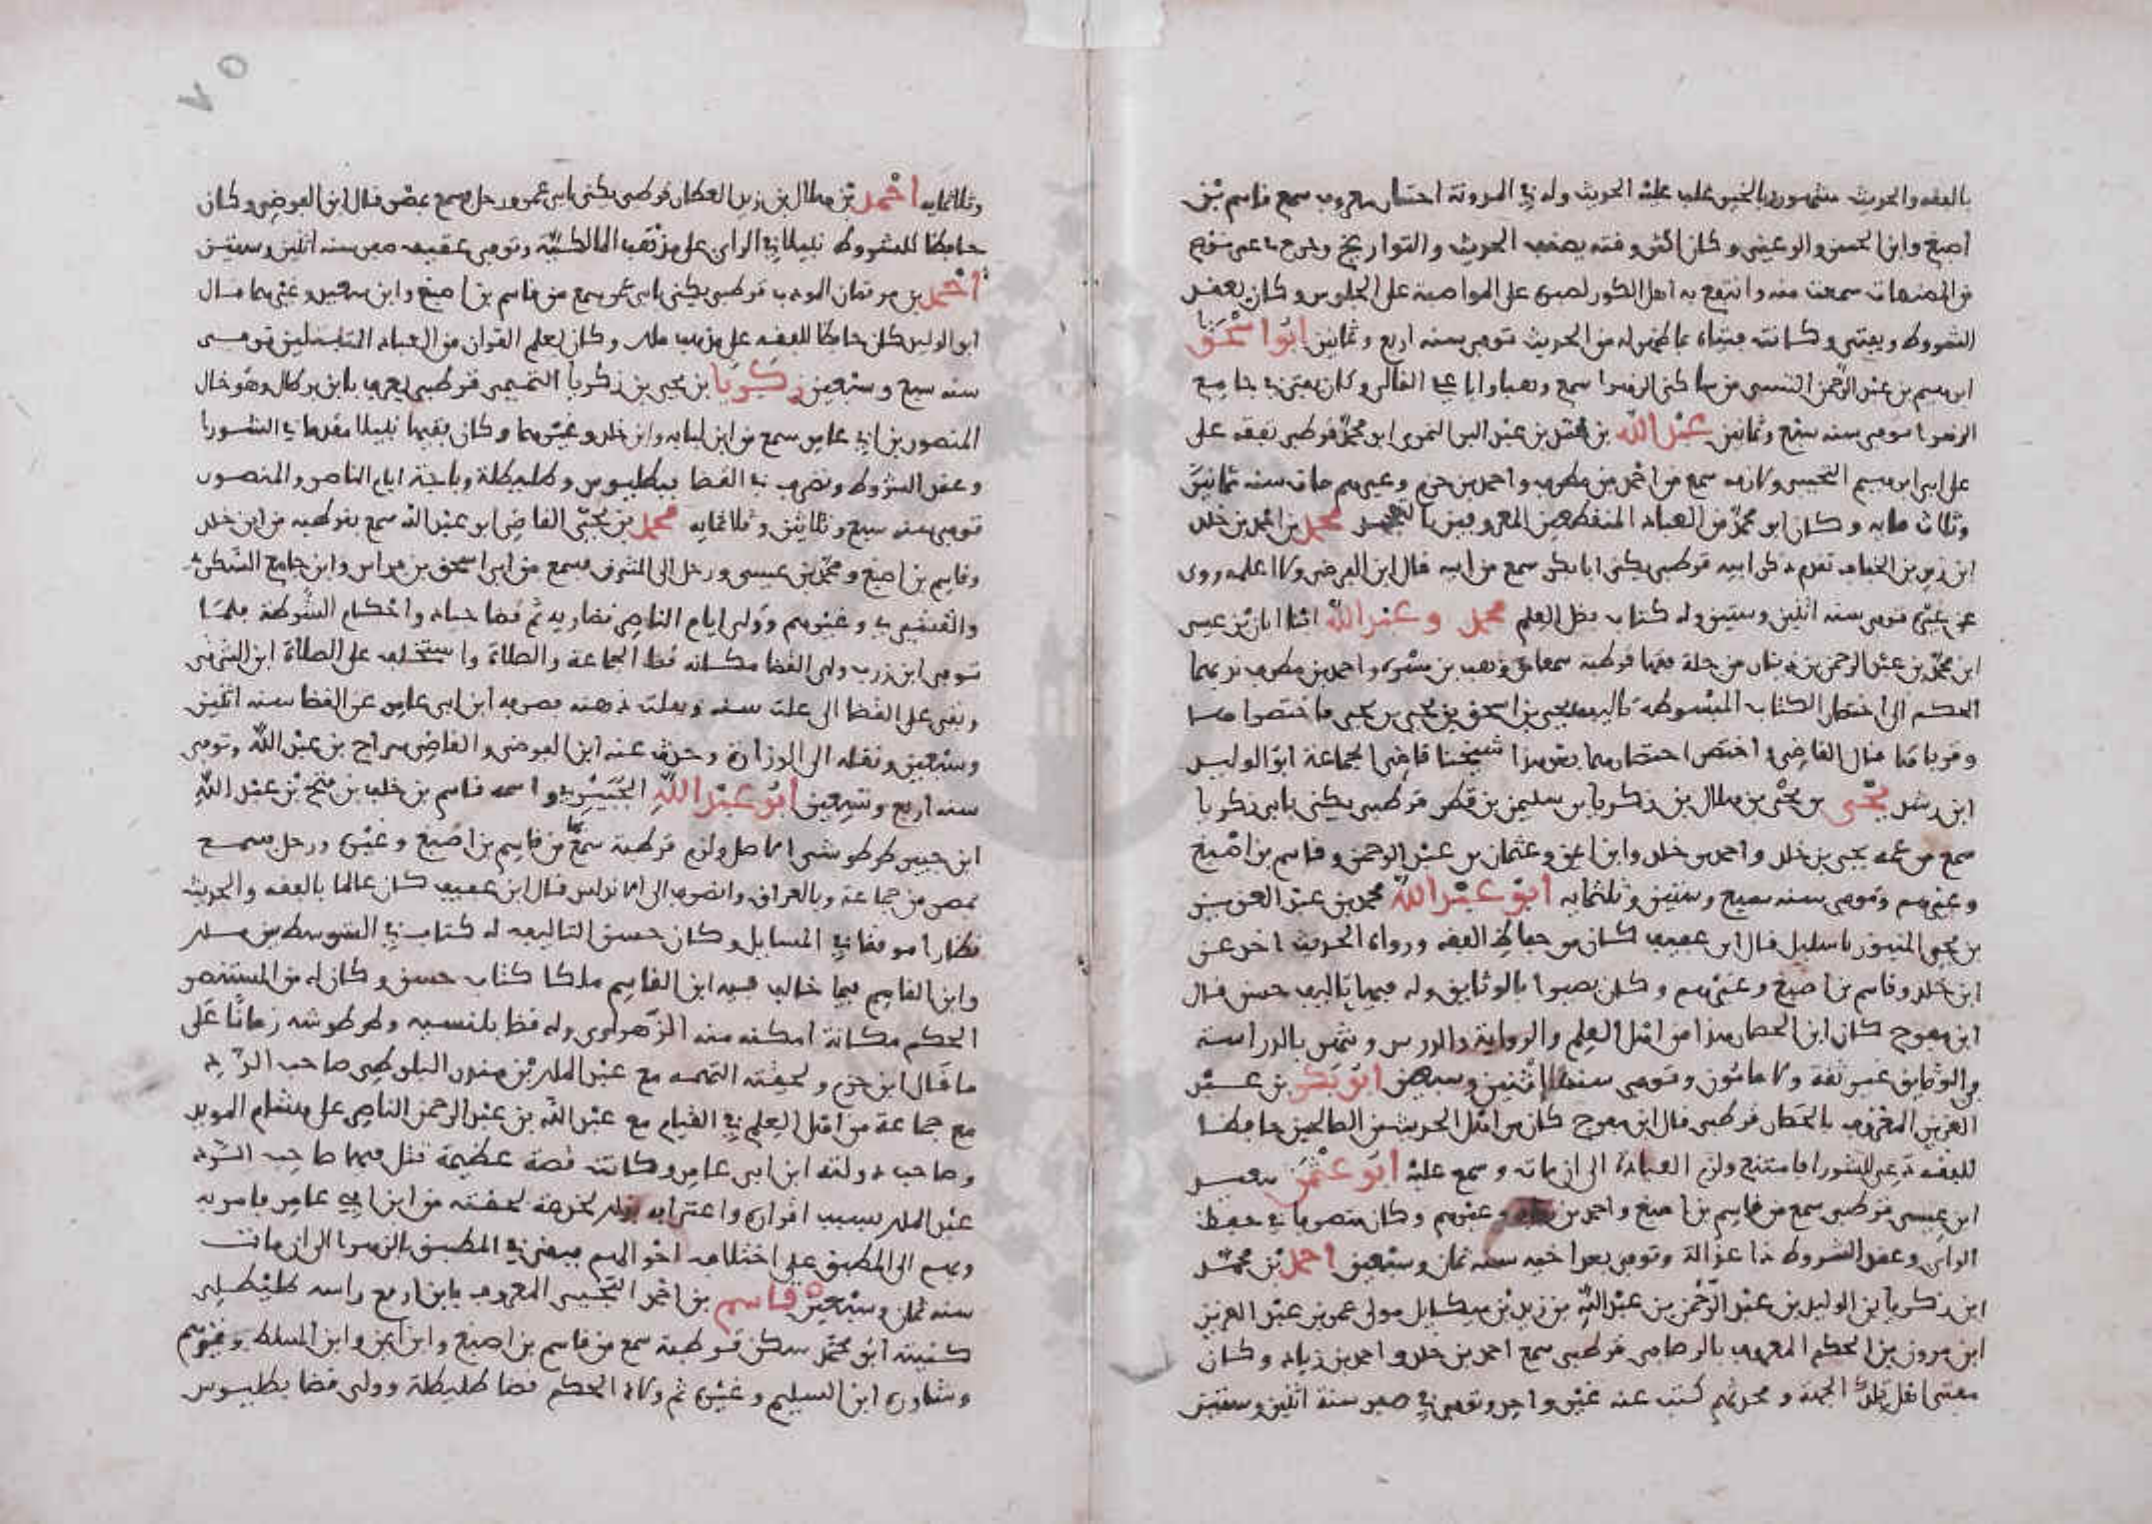 بالفقه والحديث مشهورا بالخير غلب عليه الحديث وله في المدونة اختصار معروف سمع قاسم بن
اصبغ وابن الحسن والرعيني وكان اكثر وقته يصنف الحديث والتواريخ وخرج
من المصنفات سمعت منه وانتفع به اهل الكور لصبره على المواضبة على الجلوس وكان يعقد
الشروط ويفتي وكانت فتياه بما ظهر له من الحديث توفي سنه اربع وثمانين ابو اسحق
ابرهيم بن عبد الرحمن التنسي من ساكني الزهرا سمع وهبا وابا علي القالي وكان يفتي في جامع
الزهرا توفي سنه سبع وثمانين عبد الله بن محمد بن عبد البر النمري ابو محمد قرطبي تفقه على
على ابي ابرهيم التجيبي ولازمه سمع من احمد بن مطرف واحمد بن حزم وغيرهم مات سنه ثمانين
وثلاث مايه وكان ابو محمد من العباد المنقطعين المعروفين بالتهجد محمد بن احمد بن خلد
ابن يزيد بن الخباب تقدم ذكر ابيه قرطبي يكنى ابا بكر سمع من ابيه قال ابن الفرضي ولا اعلمه روى
عن غيره توفي سنه اثنين وستين وله كتاب فضل العلم محمد وعبد الله ابنا ابان بن عيسى
ابن محمد بن عبد الرحمن بن دينار من جلة فقها قرطبة سمعا من وهب بن مسره واحمد بن مطرف ندبهما
الحكم الى اختصار الكتاب المبسوطه تاليف يحيى بن اسحق بن يحيى بن يحيى فاختصراه
وقرباه قال القاضي اختصر اختصارهما بعد هذا شيخنا قاضي الجماعة ابو الوليد
ابن رشد يحيى بن يحيى بن هلال بن زكريا بن سليمن بن فطر قرطبي يكنى بابي زكريا
سمع من عمه يحيى بن خلد واحمد بن خلد وابن اعين وعثمان بن عبد الرحمن وقاسم بن اصبغ
وغيرهم وتوفي سنه سبع وستين وثلثمايه ابو عبد الله محمد بن عبد العزيز
قال ابن عفيف كان من حفاظ الفقه ورواة الحديث اخذ عن
ابن خلد وقاسم بن اصبغ وغيرهم وكان بصيرا بالوثايق وله فيها تاليف حسن قال
ابن مفرج كان ابن الحصار هذا من اهل العلم والرواية والدرس وشهر بالدراسة
والوثايق غير ثقة ولا مامون وتوفي سنة اثنين وسبعين ابو بكر بن عبد
العزيز المعروف بالحصار قرطبي قال ابن مفرج كان من اهل الحديث من الصالحين حافظا
للفقه دعي للشورا فامتنع ولزم العبادة الى ان مات وسمع عليه ابو عثمن سعيد
ابن عيسى قرطبي سمع من قاسم بن اصبغ واحمد بن وغيرهم وكان متصرفا في حفظ
الراي وعقد الشروط ذا عدالة وتوفي بعد اخيه سنه ثمان وسبعين احمد بن محمد
ابن زكريا بن الوليد بن عبد الرحمن بن عبد الله بن زيد بن ميكايل مولى عمر بن عبد العزيز
ابن مروان بن الحكم المعروف بالرصافي قرطبي سمع احمد بن خلد واحمد بن زياد وكان
مفتي اهل تلك الجهة ومحدثهم كتب عنه غير واحد وتوفي في صفر سنة اثنين وستين
وثلاثمايه احمد بن هلال بن زيد العطار قرطبي يكنى بابي عمر ورحل وسمع بمصر قال ابن الفرضي وكان
حافظا للشروط نبيلا في الراي على مذهب المالكية وتوفي عقيب صفر سنه اثنين وستين
احمد بن المودب قرطبي يكنى بابي عمر سمع من قاسم بن اصبغ وابن سعيد وغيرهما قال
ابو الوليد كان حافظا للفقه على مذهب ملك وكان يعلم القران من العباد المتبتلين توفي
سنه سبع وسبعين زكريا بن يحيى بن زكريا التميمي قرطبي يعرف بابن برطال وهو خال
المنصور بن ابي عامر سمع من ابن لبابه وابن خلد وغيرهما وكان فقيها نبيلا مقدما في الشورا
وعقد الشروط وتصرف في القضا ببطليوس وطليطلة وباجة ايام الناصر والمنصور
توفي سنه سبع وثلاثين وثلاثمايه محمد بن يحيى القاضي ابو عبد الله سمع بقرطبه من ابن خلد
وقاسم بن اصبغ ومحمد بن عيسى ورحل الى المشرق فسمع من ابي اسحق بن فراس وابن جامع السكري
وغيرهم وولي ايام الناصر قضا ريه ثم قضا جيان واحكام الشرطة فلما
توفي ابن زرب ولي القضا مكانه قضا الجماعة والصلاة واستخلف على الصلاة ابن الشرفي
وبقي على القضا الى علت سنه وبعلت ذهنه فصرفه ابن ابي عامر عن القضا سنه اثنين
وتسعين ونقله الى الوزارة وحدث عنه ابن الفرضي والقاضي سراج بن عبد الله وتوفي
سنه اربع وتسعين ابو عبد الله الجبيري واسمه قاسم بن خلف بن فتح بن عبد الله
ابن جبير طرطوشي الاصل ولزم قرطبة سمع من قاسم بن اصبغ وغيره ورحل فسمع
بمصر من جماعة وبالعراق وانصرف الى الاندلس قال ابن عفيف كان عالما بالفقه والحديث
نظارا موفقا في المسايل وكان حسن التاليف له كتاب في التوسط بين ملك
وابن القاسم فيما خالف فيه ابن القاسم ملكا كتاب حسن وكان له من المستنصر
الحكم مكانة امكنه منه الزهراوي وله قضا بلنسيه وطرطوشه زمانا على
ما قال ابن حزم ولحقته التهمه مع عبد الملك بن منذر البلوطي صاحب الرد
مع جماعة من اهل العلم في القيام مع عبد الله بن عبد الرحمن الناصر على هشام المويد
وصاحب دولته ابن ابي عامر وكانت قصة عظيمة قتل فيها صاحب الرد
عبد الملك بسبب اقراره واعترافه لحقته من ابن ابي عامر فامر به
وبهم الى المطبق على اختلاف احوالهم فبقي في المطبق بالزهرا الى ان مات
سنه ثمان وسبعين قاسم بن احمد التجيبي المعروف بابن ارفع راسه طليطلي
كنيته ابو محمد سكن قرطبة سمع من قاسم بن اصبغ وابن ايمن وابن المسلط وغيرهم
وشاوره ابن السليم وغيره ثم ولاه الحكم قضا طليطلة وولي قضا بطليوس